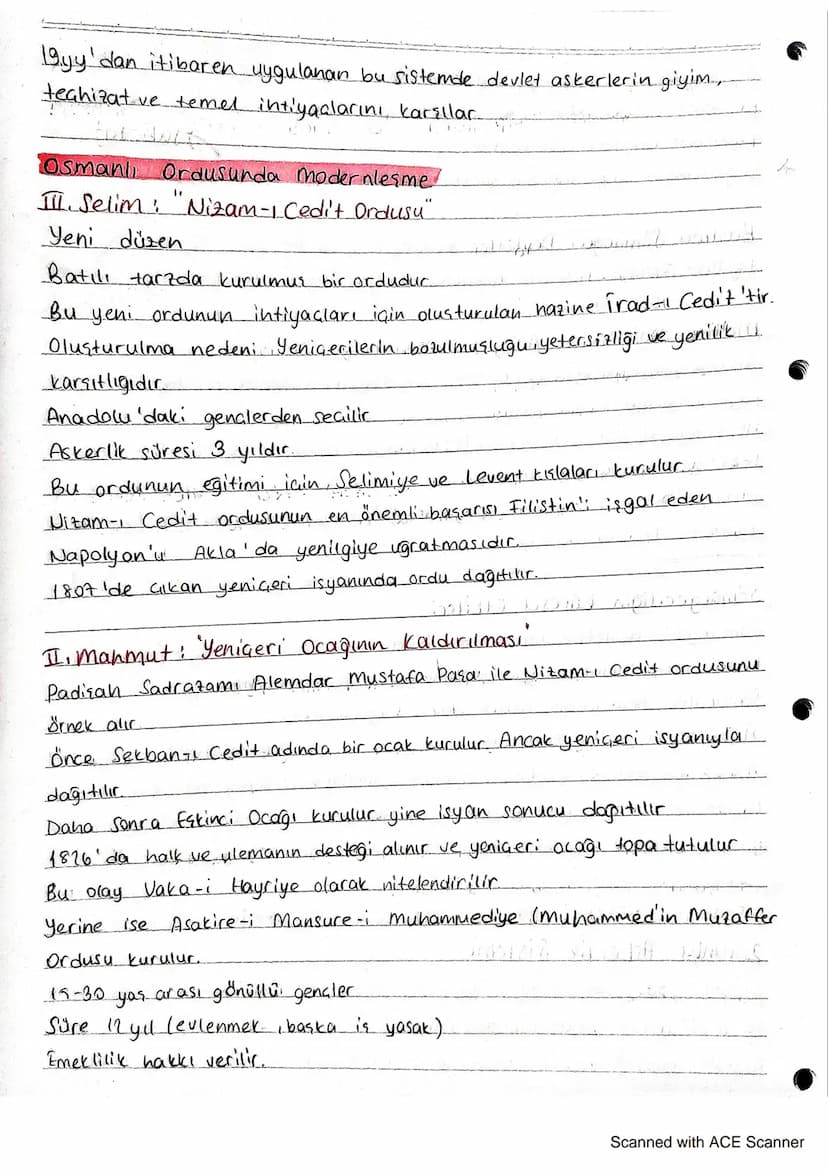 19yy'dan itibaren uygulanan bu sistemde devlet askerlerin giyim,
teçhizat ve temel ihtiyaçlarını karşılar.
Osmanlı Ordusunda Modernleşme
III. Selim : "Nizam-ı Cedit Ordusu"
Yeni düzen
Batılı tarzda kurulmuş bir ordudur
Bu yeni ordunun ihtiyaçları için oluşturulan hazine İrad-ı Cedit'tir.
Oluşturulma nedeni Yeniçerilerin bozulmuşluğu, yetersizliği ve yenilik
karşıtlığıdır
Anadolu'daki gençlerden seçilir
Askerlik süresi 3 yıldır.
Bu ordunun eğitimi için Selimiye ve Levent kışlaları kurulur
Nizam-ı Cedit ordusunun en önemli başarısı Filistin'i işgal eden
Napolyon'u Akka'da yenilgiye uğratmasıdır.
1807'de çıkan yeniçeri isyanında ordu dağıtılır.
II. Mahmut : 'Yeniçeri Ocağının Kaldırılması'
Padişah Sadrazamı Alemdar Mustafa Paşa ile Nizam-ı Cedit ordusunu
örnek alır
Önce Sekban-ı Cedit adında bir ocak kurulur. Ancak yeniçeri isyanıyla
dağıtılır.
Daha sonra Eşkinci Ocağı kurulur yine isyan sonucu dağıtılır
1826'da halk ve ulemanın desteği alınır ve yeniçeri ocağı topa tutulur
Bu olay Vaka-i Hayriye olarak nitelendirilir
Yerine ise Asakire-i Mansure-i Muhammediye (Muhammed'in Muzaffer
Ordusu kurulur.
15-30 yaş arası gönüllü gençler
Süre 12 yıl (evlenmek, başka iş yasak)
Emeklilik hakkı verilir.
Scanned with ACE Scanner